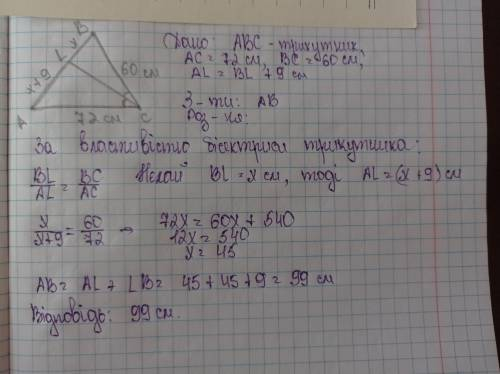 B
L
x
x+9
60 см
A
72 см
C
Дано: ABC - трикутник,
AC = 72 см, BC = 60 см,
AL = BL + 9 см
З-ти: AB
Роз-ня:
За властивістю бісектриси трикутника:
BL/AL = BC/AC Нехай BL = x см, тоді AL = (x+9) см
x/x+9 = 60/72 → 72x = 60x + 540
12x = 540
x = 45
AB = AL + LB = 45 + 45 + 9 = 99 см
Відповідь: 99 см.